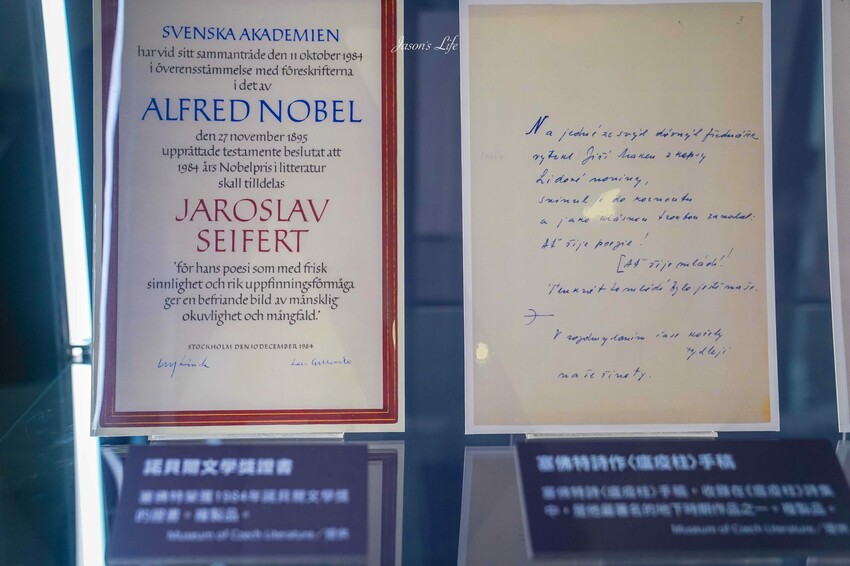 SVENSKA AKADEMIEN
har vid sitt sammanträde den 11 oktober 1984
i överensstämmelse med föreskrifterna
i det av
ALFRED NOBEL
den 27 november 1895
upprättade testamente beslutat att
1984 års Nobelpris i litteratur
skall tilldelas
JAROSLAV
SEIFERT
"för hans poesi som med frisk
sinnlighet och rik uppfinningsförmåga
ger en befriande bild av mänsklig
okuvlighet och mångfald."
STOCKHOLM DEN 10 DECEMBER 1984
Jason's Life
3
Na jedné ze svých dávných
Jiří
Lidové noviny,
do kornoutu
a jako
Ať žije poezie!
[Ať žije mládí!
Tenkrát to mládí bylo ještě naše.
V
naše životy.
諾貝爾文學獎證書
塞佛特榮獲1984年諾貝爾文學獎
的證書。複製品。
Museum of Czech Literature／提供
塞佛特詩作《瘟疫柱》手稿
塞佛特詩《瘟疫柱》手稿，收錄在《瘟疫柱》詩集
中，是他最著名的地下時期作品之一。複製品。
Museum of Czech Literature／提供